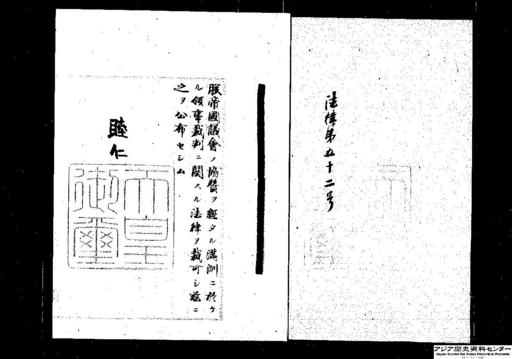 法律第五十二号
朕帝國議會ノ協賛ヲ経タル満洲ニ於ケ
ル領事裁判ニ関スル法律ヲ裁可シ茲ニ
之ヲ公布セシム
睦仁
天皇
御璽
アジア歴史資料センター
Japan Center for Asian Historical Records